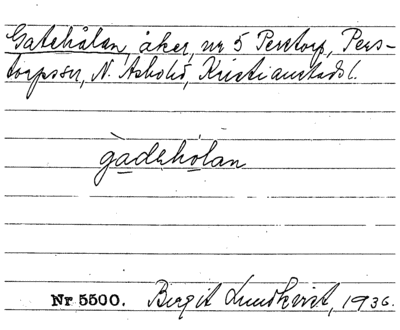 Gatehålan, åker, nr 5 Perstorp, Pers-
torps sn, N. Åsbohd, Kristianstads l.
gadehólan
Nr 5500. Birgit Lundkvist, 1936.